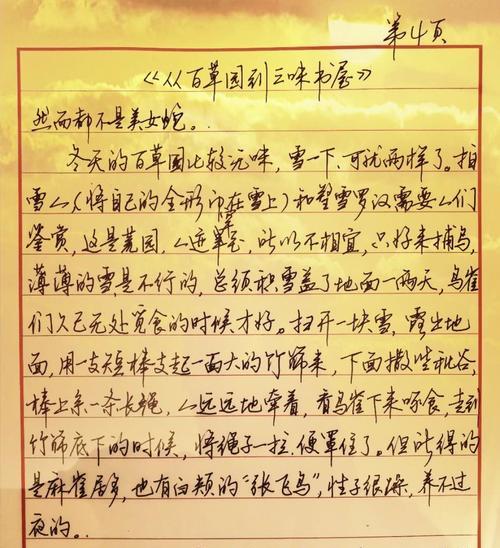 第4页
《从百草园到三味书屋》
然而都不是美女蛇。
冬天的百草园比较无味，雪一下，可就两样了。拍
雪人（将自己的全形印在雪上）和塑雪罗汉需要人们
鉴赏，这是荒园，人迹罕至，所以不相宜，只好来捕鸟，
薄薄的雪，是不行的，总须积雪盖了地面一两天，鸟雀
们久已无处觅食的时候才好。扫开一块雪，露出地
面，用一支短棒支起一面大的竹筛来，下面撒些秕谷，
棒上系一条长绳，人远远地牵着，看鸟雀下来啄食，走到
竹筛底下的时候，将绳子一拉，便罩住了。但所得的
是麻雀居多，也有白颊的“张飞鸟”，性子很躁，养不过
夜的。